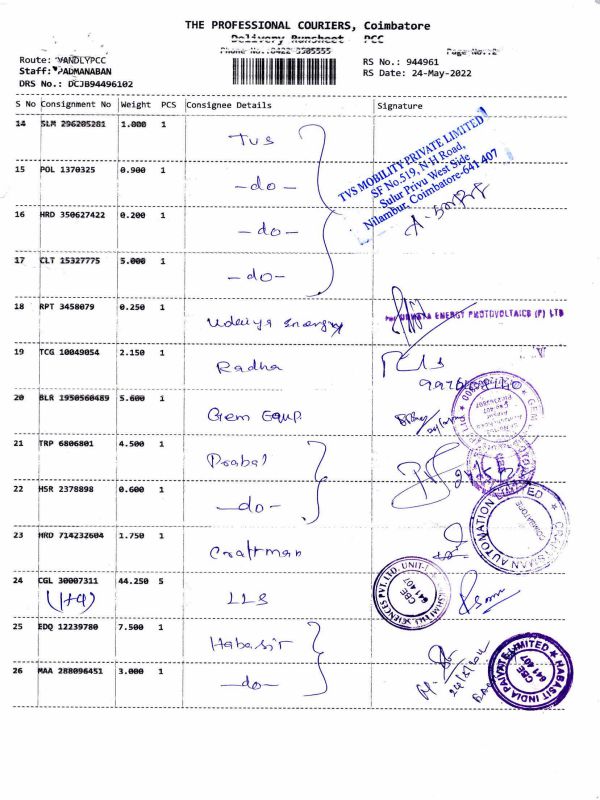 THE PROFESSIONAL COURIERS, Coimbatore
Delivery Runsheet - PCC
Phone No.:0422 3505555
Page No.:2
Route: VANDLYPCC
Staff: PADMANABAN
DRS No.: DCJB94496102
RS No.: 944961
RS Date: 24-May-2022
S No Consignment No Weight PCS Consignee Details Signature
14 SLM 296205281 1.000 1 TVS
TVS MOBILITY PRIVATE LIMITED
SF No.519, N H Road,
Sulur Privu West Side
Nilambur, Coimbatore-641 407
15 POL 1370325 0.900 1 -do-
16 HRD 350627422 0.200 1 -do-
17 CLT 15327775 5.000 1 -do-
18 RPT 3458079 0.250 1 Udaiya Energy
ENERGY PHOTOVOLTAICS (P) LTD
19 TCG 10049054 2.150 1 Radha
20 BLR 1950560489 5.600 1 Gem Equp.
21 TRP 6806801 4.500 1 Prabal
22 HSR 2378898 0.600 1 -do-
23 HRD 714232604 1.750 1 Craftman
CRAFTSMAN AUTOMATION LIMITED
COIMBATORE
24 CGL 30007311 44.250 5 LLS
(1+4)
SCIENCES PVT. LTD. UNIT-I
CBE
641 407
25 EDQ 12239780 7.500 1 Habasit
26 MAA 288096451 3.000 1 -do-
HABASIT INDIA PRIVATE LIMITED
CBE
641 407